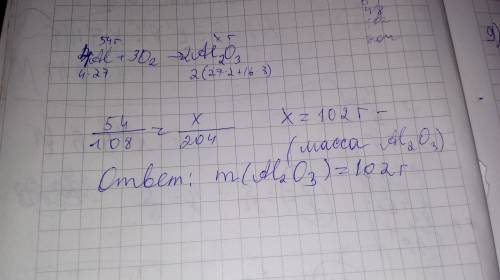 54 г x г
4Al + 3O₂ → 2Al₂O₃
4·27 2(27·2+16·3)
54/108 = x/204 x = 102 г –
(масса Al₂O₃)
Ответ: m(Al₂O₃) = 102 г
9)